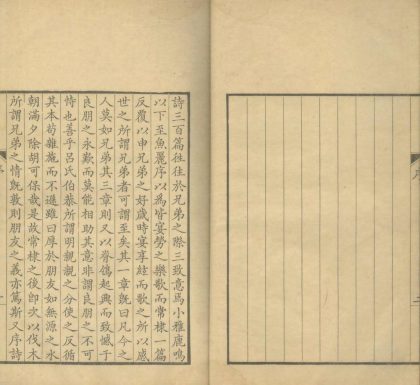 詩三百篇往往於兄弟之際三致意焉小雅鹿鳴
以下至魚麗序以為皆宴勞之樂歌而常棣一篇
反覆以申兄弟之好歲時宴享絃而歌之所以感
世之所謂兄弟者可謂至矣其一章既曰凡今之
人莫如兄弟其三章則又以脊鴒起興而致憾于
良朋之永歎而莫能相助其意非謂良朋之不可
恃也善乎呂氏伯恭所謂明親親之分使之反循
其本苟雜施而不遜雖曰厚於朋友如無源之水
朝滿夕除胡可保哉是故常棣之後卽次以伐木
所謂兄弟之情既敦則朋友之義亦篤斯又序詩